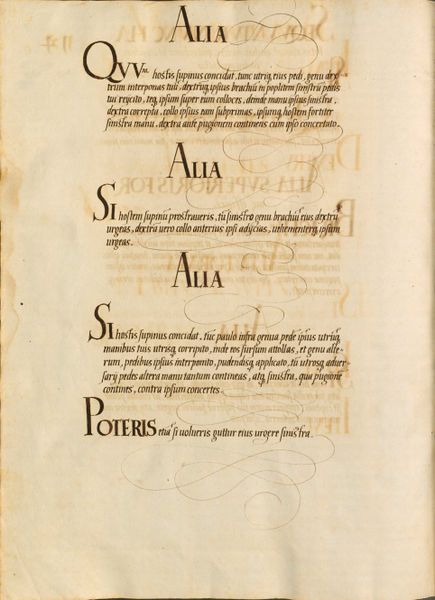 ALIA
QVVM hostis supinus concidat, tunc utriq, eius pedi, genu dex-
trum interponas tuū, dextrūq, ipsius brachiū in poplitem sinistrū pedis
tui reycito, teq, ipsum super eum colloces, deinde manu ipsius sinistra,
dextra correpta, collo ipsius eam subprimas, ipsumq, hostem fortiter
sinistra manu, dextra aute pugionem continens cum ipso concertato.
ALIA
Si hostem supinū prostraveris, tū sinistro genu brachiū eius dextrū
urgeas, dextra uero collo anterius ipsi adyicias, uehementerq, ipsum
urgeas.
ALIA
Si hostis supinus concidat, tūc paulo infra genua pede ipsius utrūq,
manibus tuis utrisq, corripito, inde eos sursum attollas, et genu alte-
rum, pedibus ipsius interponito, pudendisq, applicato, tū utrosq, aduer-
sarij pedes altera manu tantum contineas, atq, sinistra, qua pugione
contines, contra ipsum concertes.
POTERIS etiā si uolueris guttur eius urgere sinistra.